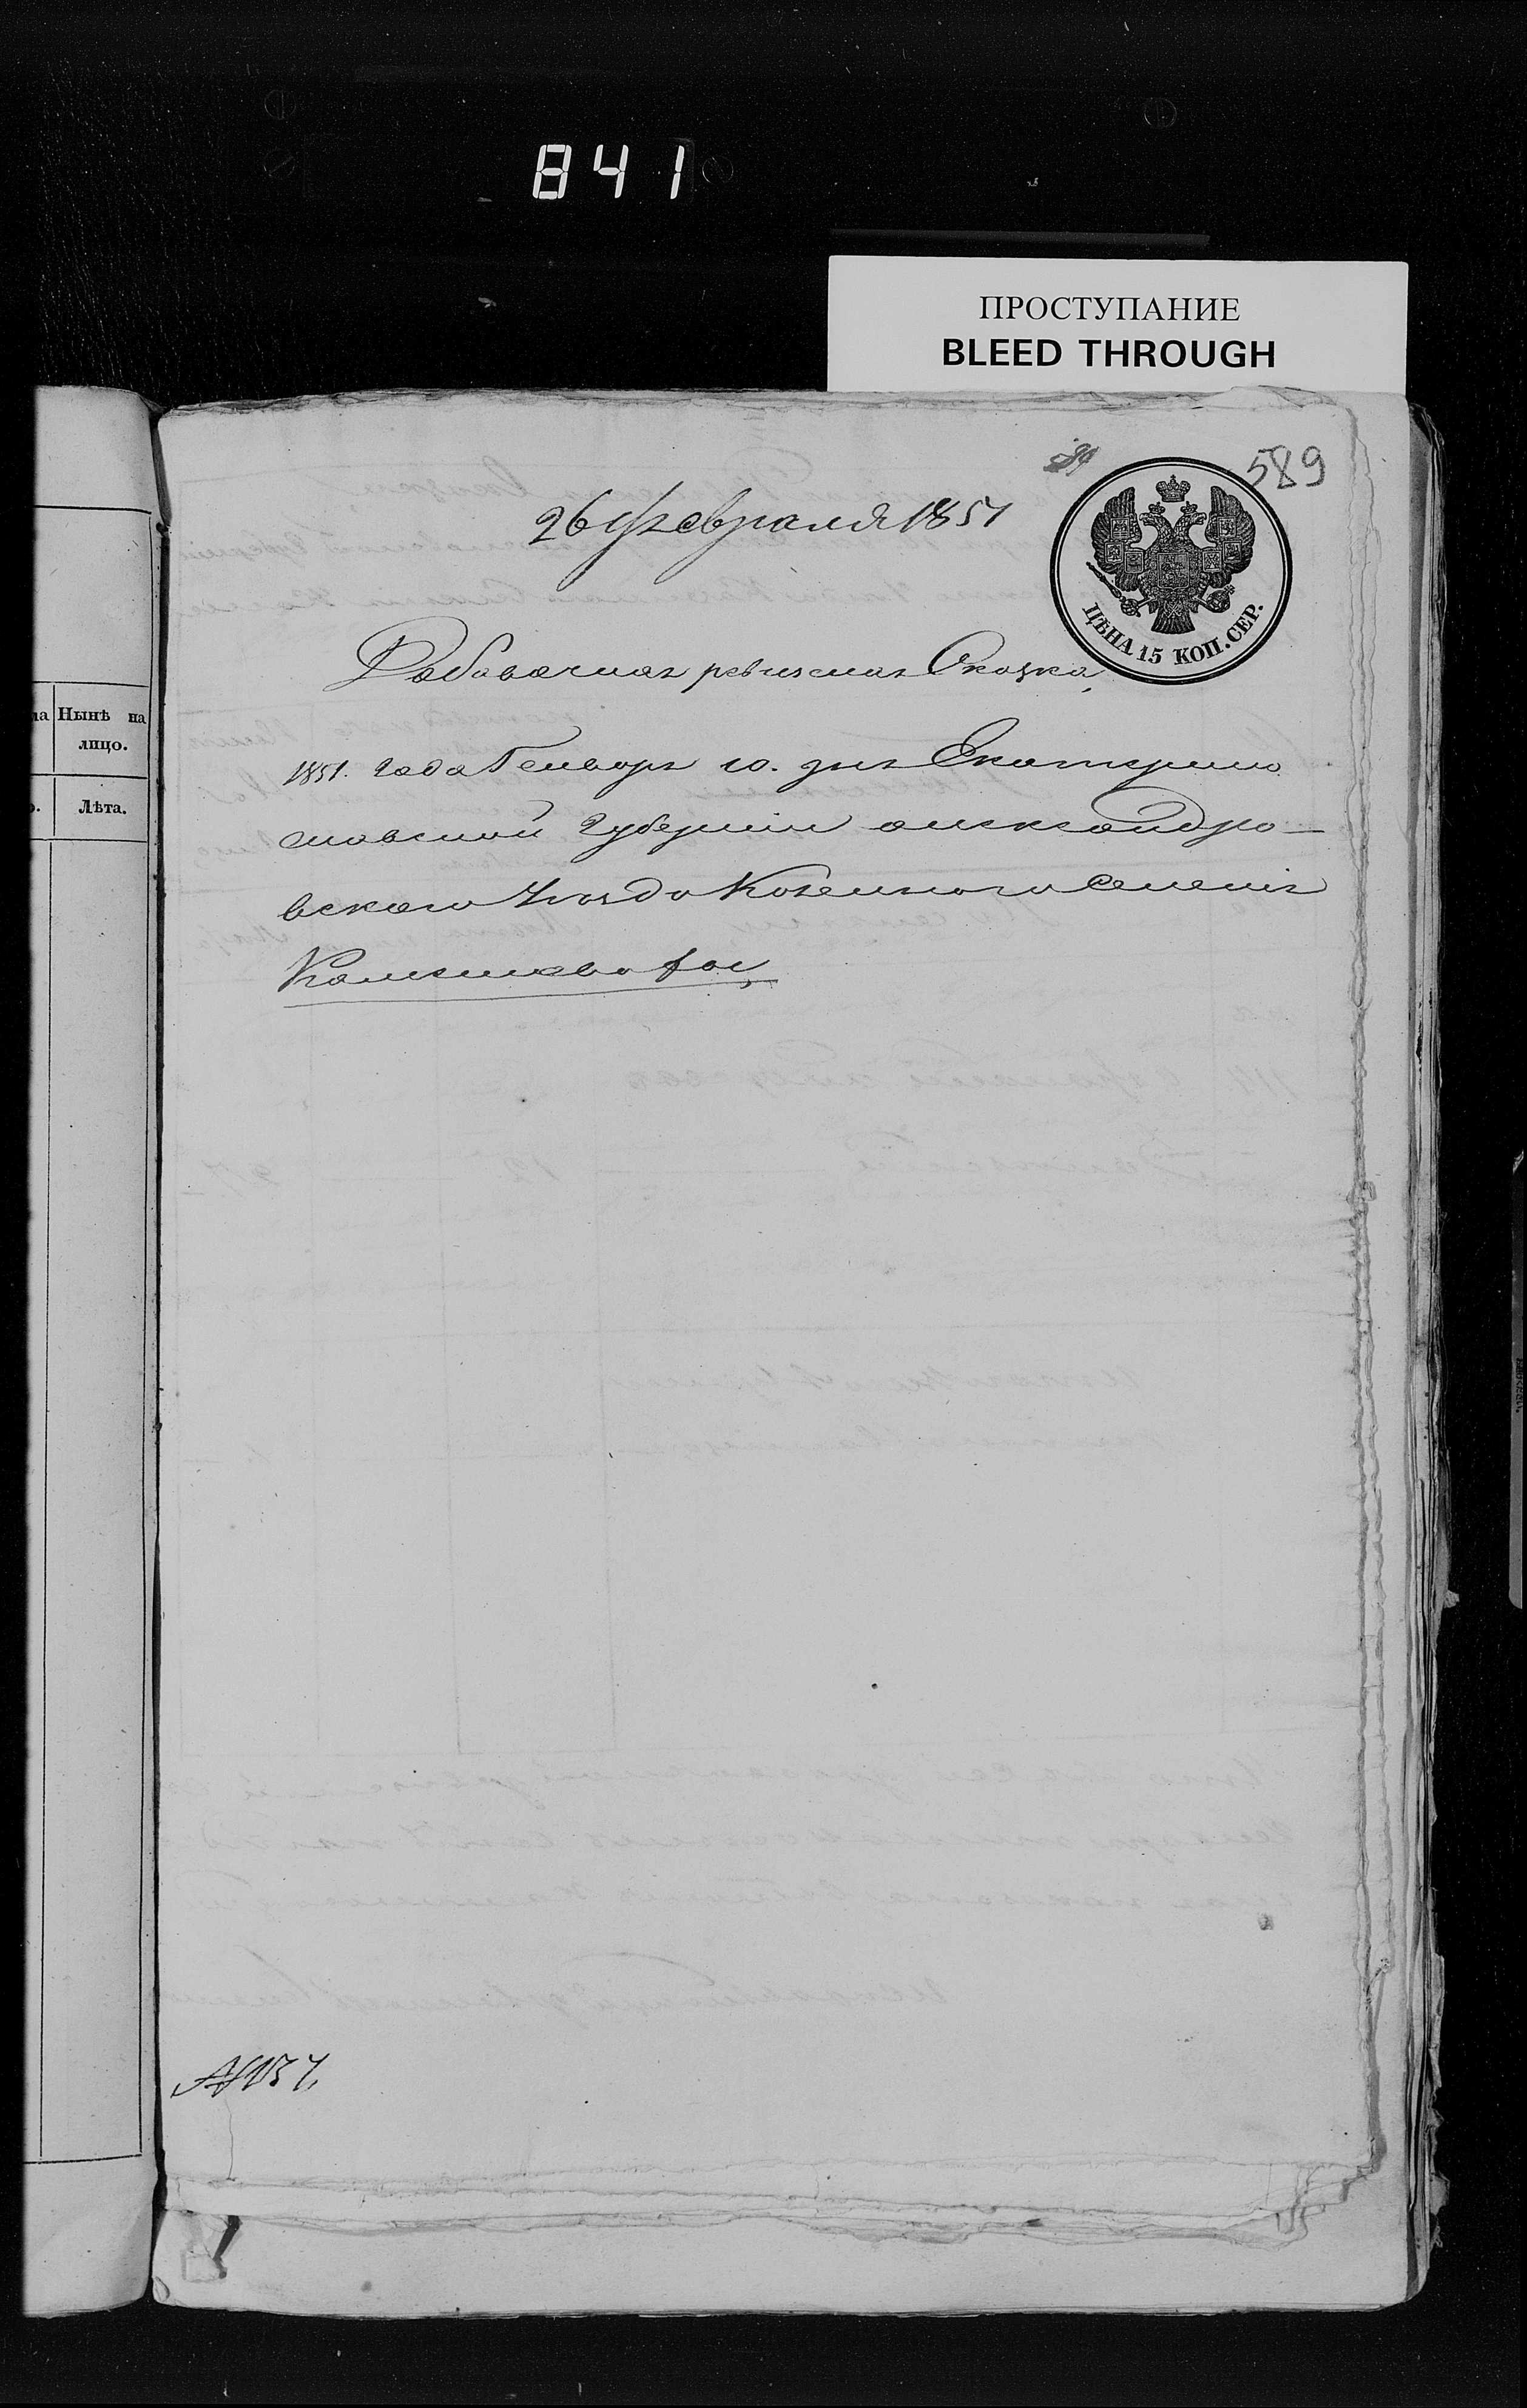 841
ПРОСТУПАНИЕ
BLEED THROUGH
589
26 февраля 1851
ЦѢНА 15 КОП. СЕР.
Добавочная ревизская Сказка,
1851. года Генваря 10. дня Екатерино
славской Губернии александро–
вского Уезда Казенного Селения
Камышеватой
ла
Нынѣ на
лицо.
Лѣта.